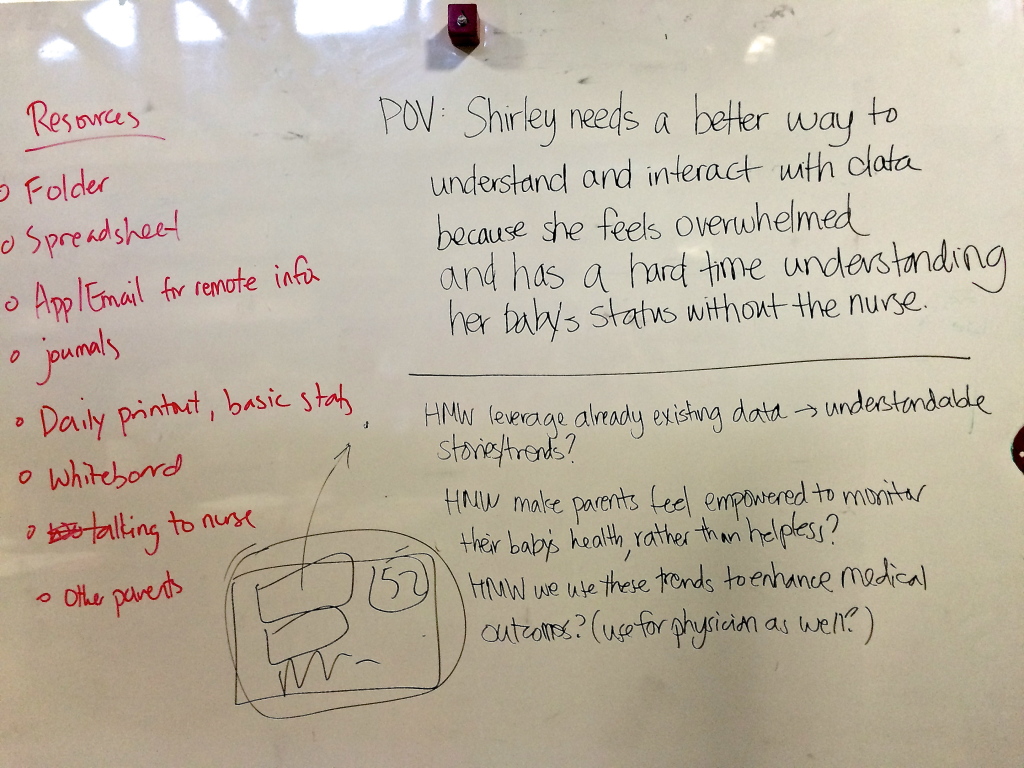 Resources
o Folder
o Spreadsheet
o App/Email for remote info
o journals
o Daily printout, basic stats
o Whiteboard
o talking to nurse
o Other parents
POV: Shirley needs a better way to
understand and interact with data
because she feels overwhelmed
and has a hard time understanding
her baby's status without the nurse.
HMW leverage already existing data → understandable
stories/trends?
HMW make parents feel empowered to monitor
their baby's health, rather than helpless?
HMW we use these trends to enhance medical
outcomes? (use for physician as well?)
152